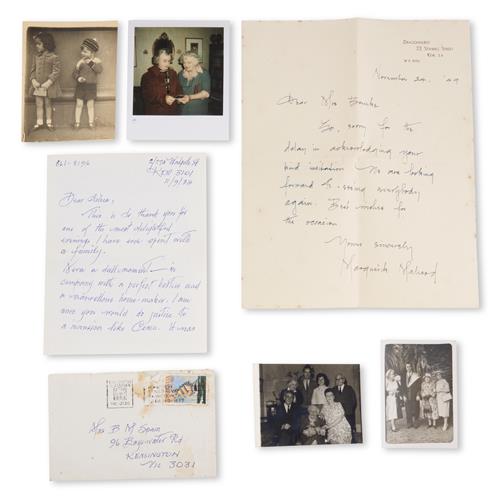 23 STAWELL STREET
KEW. E4
November 24. 49
Dear Mrs
So, sorry for the
delay in acknowledging your
kind invitation We are looking
forward to seeing everybody
again. Best wishes for
the occasion
Yours sincerely,
861-8196
KEW 3101
Dear
This is to thank you for
one of the most delightful
evenings I have ever spent with
a family.
Never a dull moment - in
company with a perfect hostess and
a marvellous home-maker. I am
sure you would do justice to
a mansion like It was
Mrs B M Spain
96 Bayswater Rd
KENSINGTON
VIC 3031